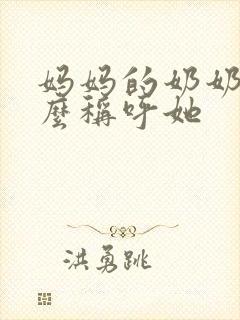 妈妈的奶奶
麼稱呼她
洪勇跳